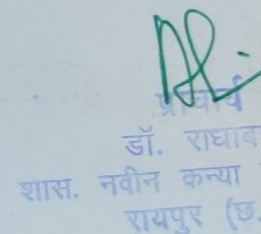 प्राचार्य
डॉ. राधाब
शास. नवीन कन्या
रायपुर (छ.